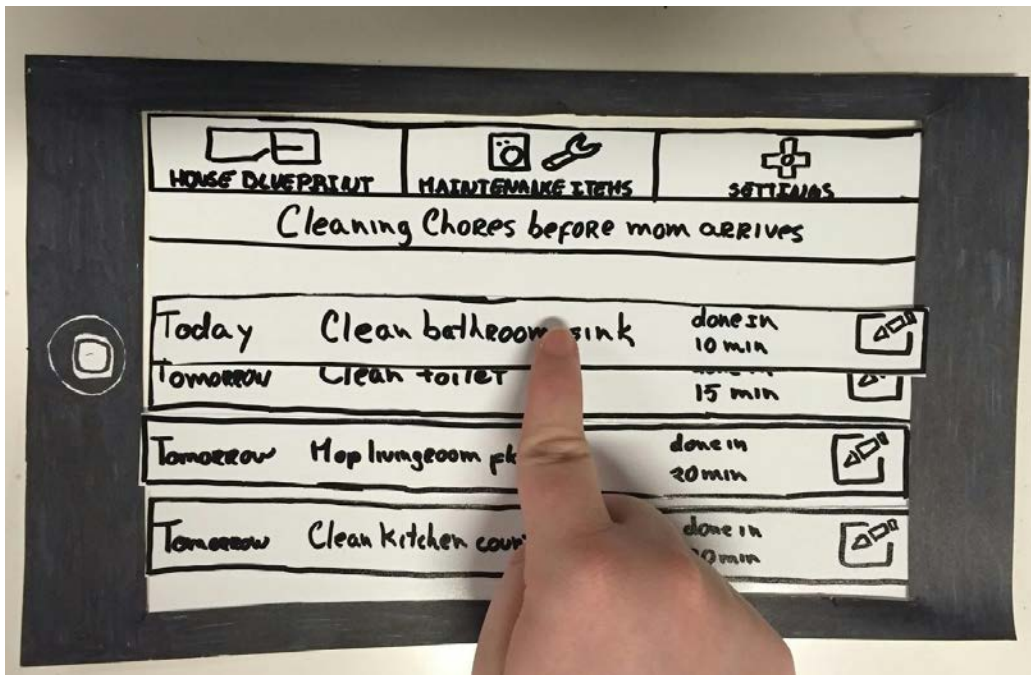 HOUSE BLUEPRINT
MAINTENANCE ITEMS
SETTINGS
Cleaning Chores before mom arrives
Today Clean bathroom sink done in
10 min
Tomorrow Clean toilet
15 min
Tomorrow Mop livingroom done in
20 min
Tomorrow Clean Kitchen done in